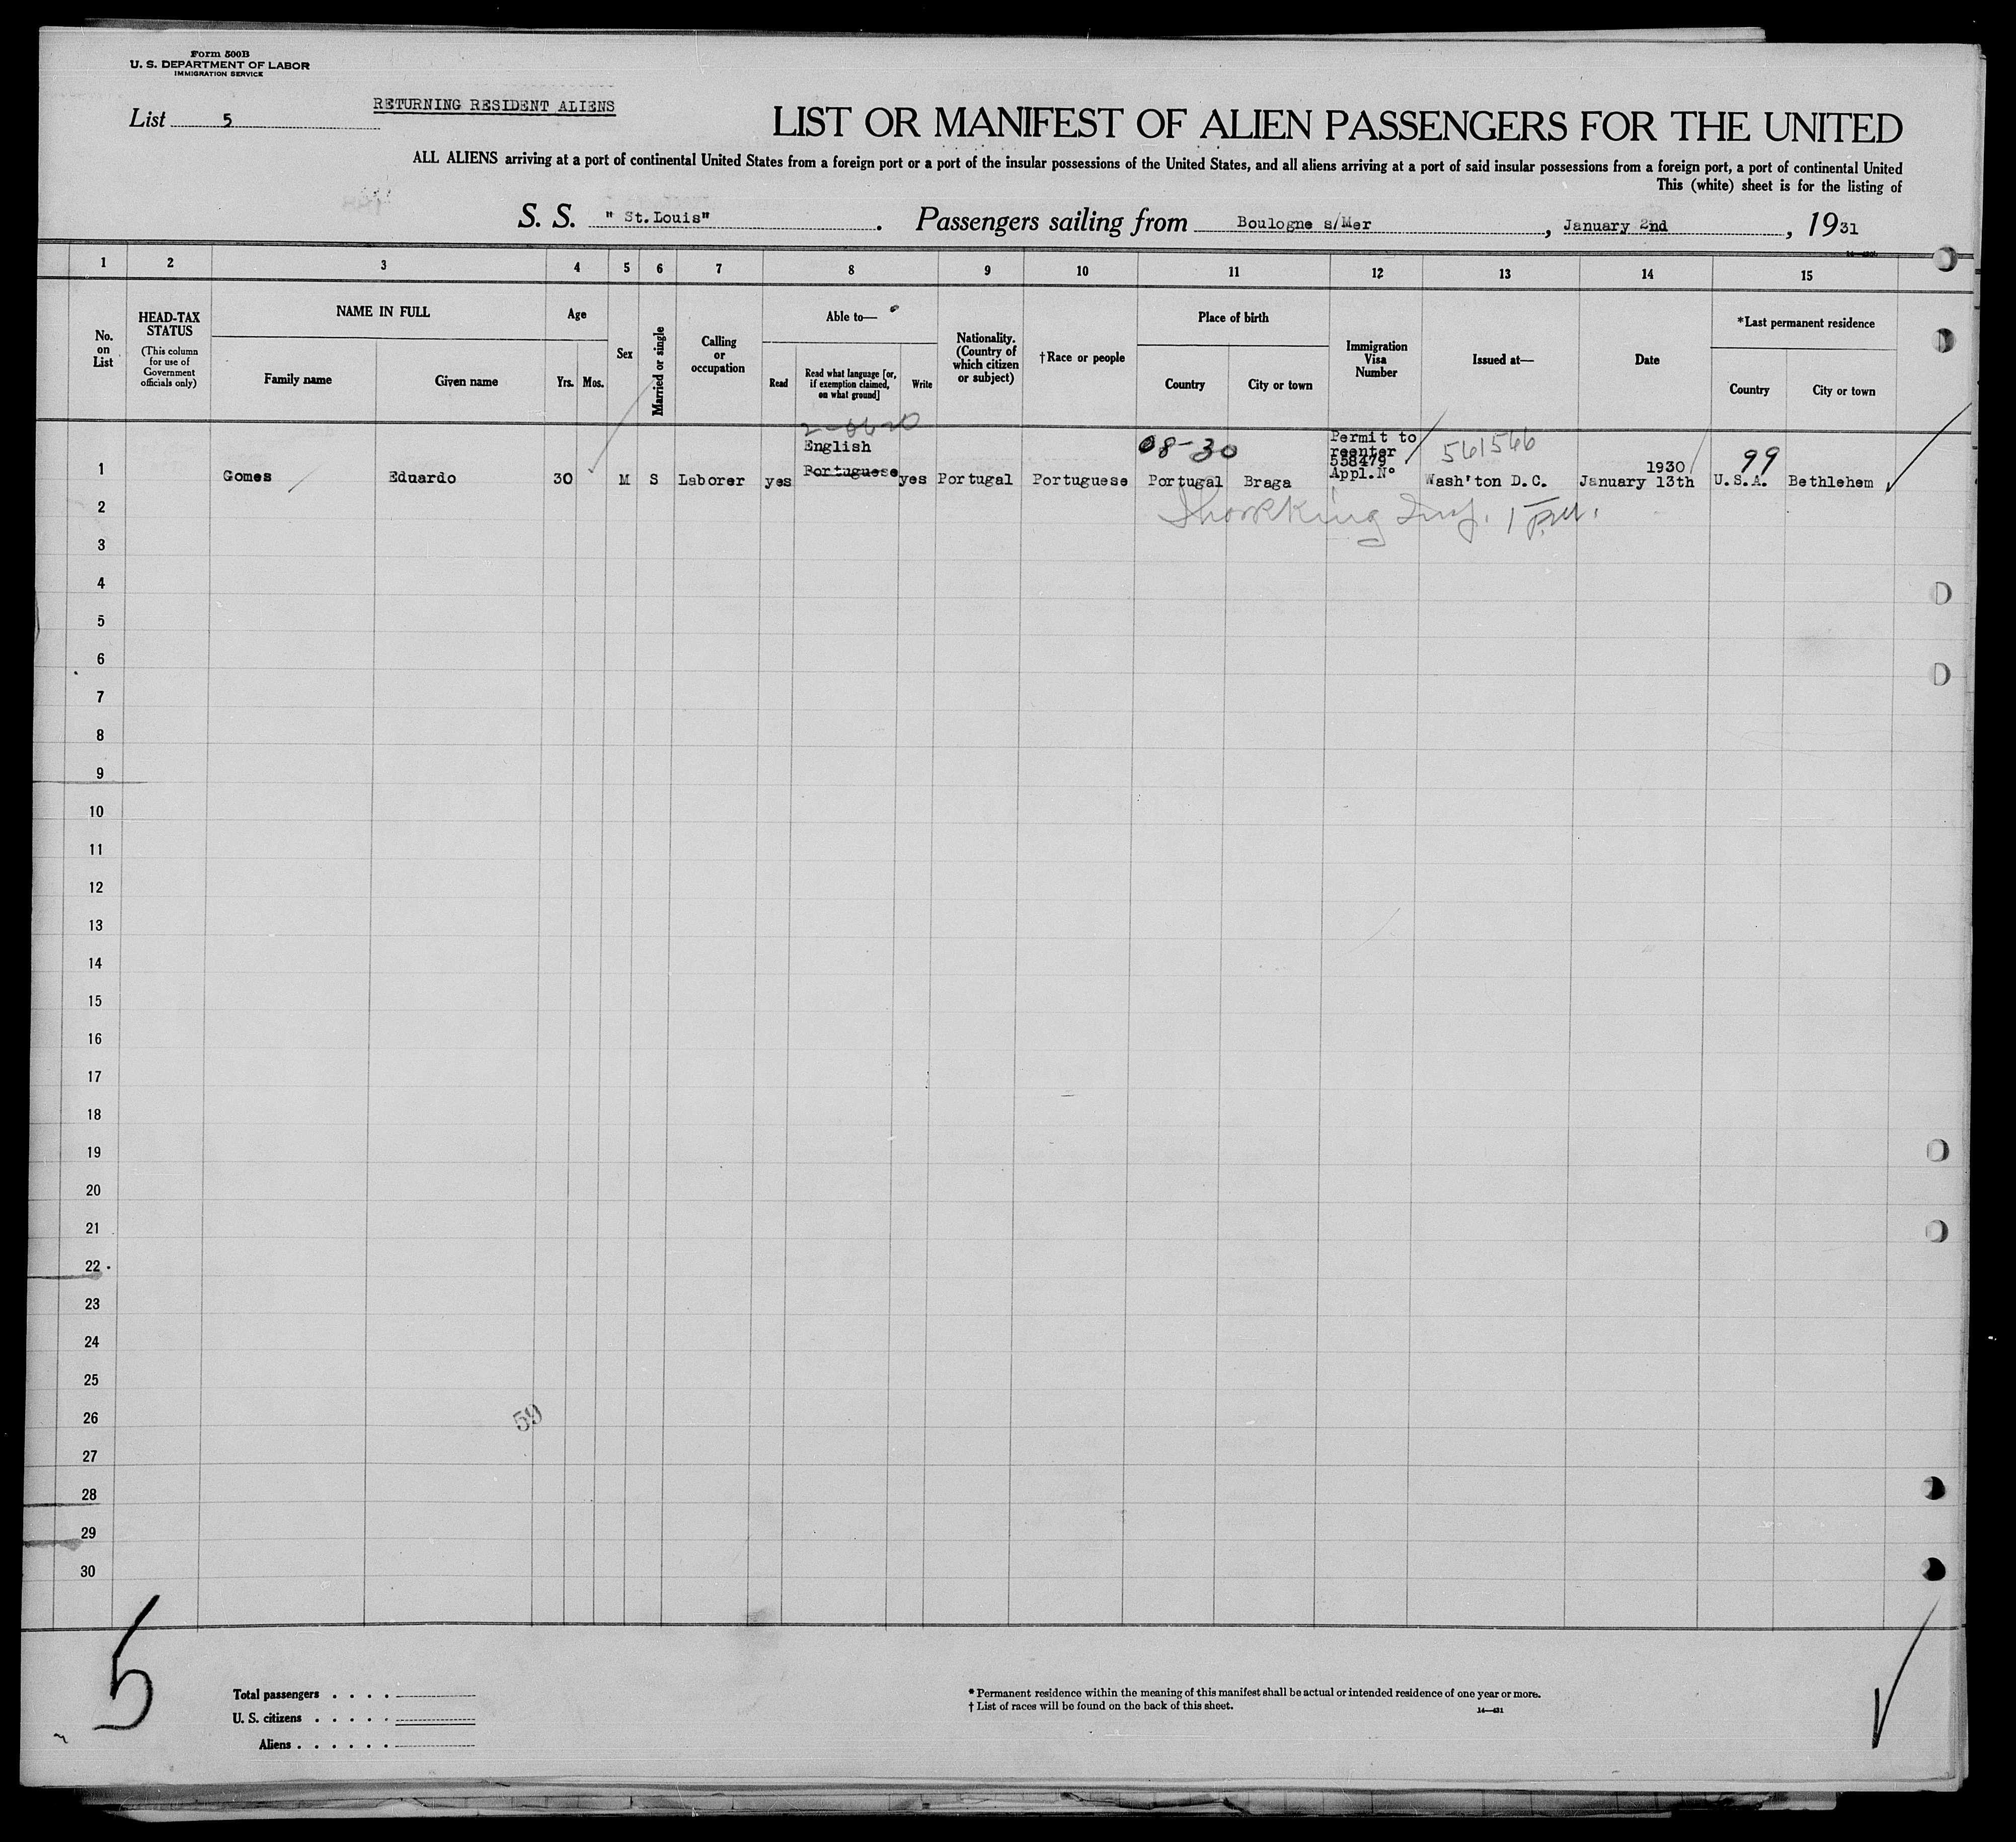 Form 500B
U. S. DEPARTMENT OF LABOR
IMMIGRATION SERVICE
RETURNING RESIDENT ALIENS
List 5
LIST OR MANIFEST OF ALIEN PASSENGERS FOR THE UNITED
ALL ALIENS arriving at a port of continental United States from a foreign port or a port of the insular possessions of the United States, and all aliens arriving at a port of said insular possessions from a foreign port, a port of continental United
This (white) sheet is for the listing of
S. S. " St.Louis" . Passengers sailing from Boulogne s/Mer , January 2nd , 1931
1 2 3 4 5 6 7 8 9 10 11 12 13 14 15
No. on List
HEAD-TAX STATUS
(This column for use of Government officials only)
NAME IN FULL
Family name
Given name
Age
Yrs. Mos.
Sex
Married or single
Calling or occupation
Able to—
Read
Read what language [or, if exemption claimed, on what ground]
Write
Nationality. (Country of which citizen or subject)
†Race or people
Place of birth
Country
City or town
Immigration Visa Number
Issued at—
Date
*Last permanent residence
Country
City or town
English
08-30
Permit to
reenter
558479
Appl.N°
561566
1930
99
1 Gomes Eduardo 30 M S Laborer yes Portuguese yes Portugal Portuguese Portugal Braga Wash'ton D.C. January 13th U.S.A. Bethlehem
2
3
4
5
6
7
8
9
10
11
12
13
14
15
16
17
18
19
20
21
22
23
24
25
26
59
27
28
29
30
5
Total passengers . . . .
U. S. citizens . . . . .
Aliens . . . . . .
* Permanent residence within the meaning of this manifest shall be actual or intended residence of one year or more.
† List of races will be found on the back of this sheet.
14—421